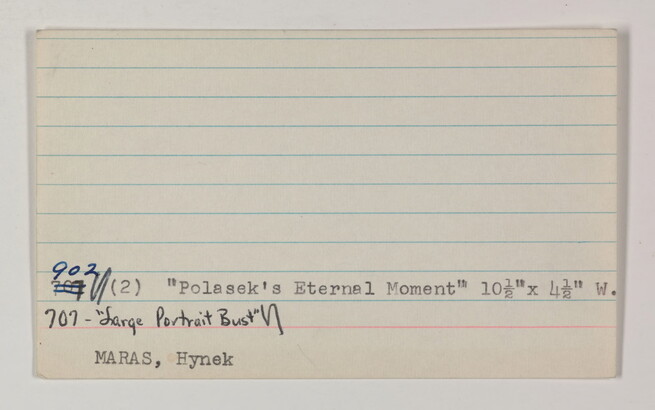 902
707 (2) "Polasek's Eternal Moment"" 10½"x 4½" W.
707 - "Large Portrait Bust"
MARAS, Hynek